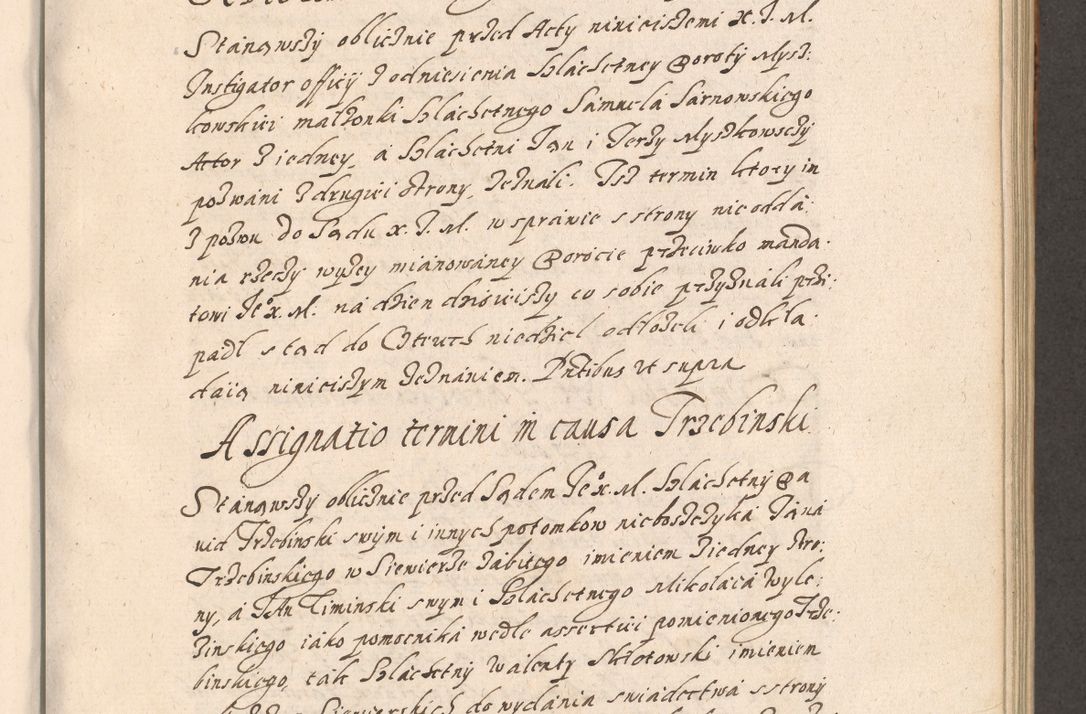 Stanąwszy oblicznie przed Acty ninieiszemi X. J. M.
Instigator officij Z odniesienia Szlachetney Doroty Mysz:
kowskiei małżonki Szlachetnego Samuela Sarnowskiego
Actor Z iedney, a Szlachetni Jan i Jerzy Myszkowsczy
pozwani Z drugiei strony, Zeznali. Isz termin ktory im
Z pozwu do Sądu X. J. M. w sprawie s strony nie odda:
nia rzeczy wyzey mianowaney Dorocie przeciwko manda:
towi Je° X. M. na dzien dzisieiszy co sobie przyznali przi:
padl s tąd do Czteruch niedziel odłożeli i odkła:
daią ninieiszym Zeznaniem. Pntibus ut supra
Assignatio termini in causa Trzebinski
Stanąwszy oblicznie przed Sądem Je° X. M. Szlachetny Da
uid Trzebinski swym i innych potomkow nieboszczyka Jana
Trzebinskiego w Siewierzu Zabitego imieniem Ziedney stro:
ny, a Jan Ziminski swym i Szlachetnego Mikolaia Wyle:
Zinskiego iako pomocnika wedle assertiei pomienionego Trze:
binskiego, tak Szlachetny Walenty Sklotowski imieniem
Siewierskich do wydania swiadectwa s strony